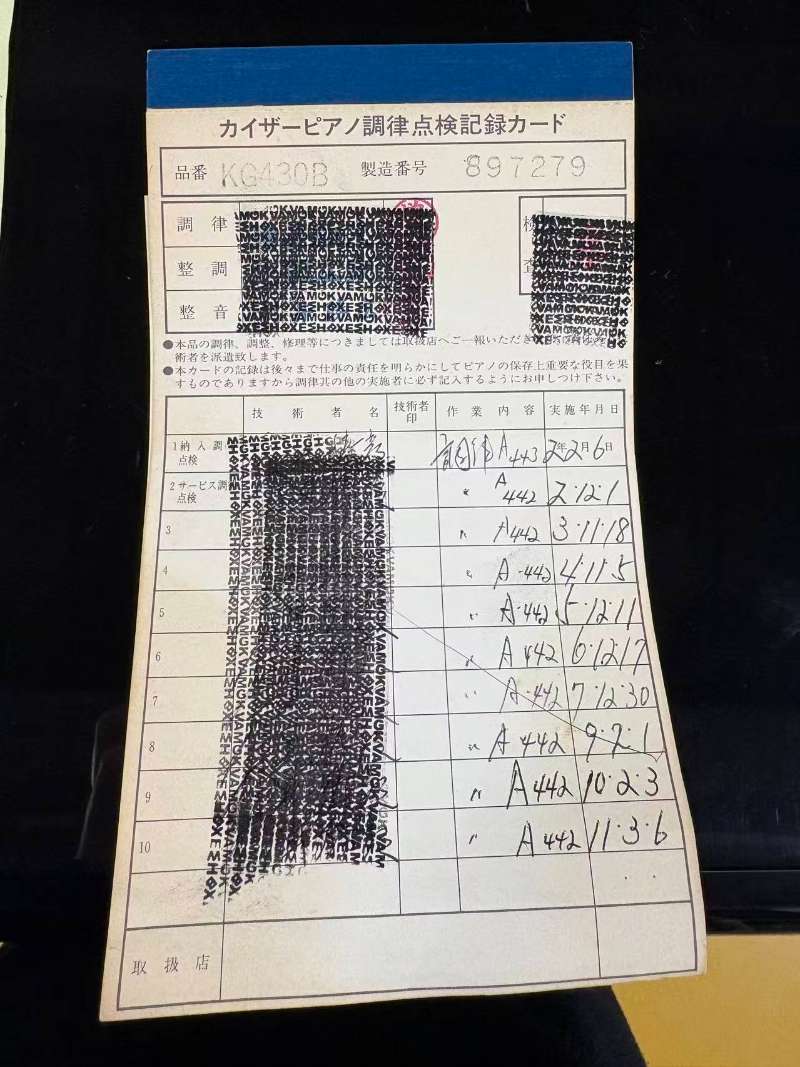 カイザーピアノ調律点検記録カード
品番 KG430B 製造番号 897279
調律
整調
整音
検
査
●本品の調律、調整、修理等につきましては取扱店へご一報いただき
術者を派遣致します。
●本カードの記録は後々まで仕事の責任を明らかにしてピアノの保存上重要な役目を果
すものでありますから調律其の他の実施者に必ず記入するようにお申しつけ下さい。
技術者名 技術者印 作業内容 実施年月日
1 納入調 点検 調律 A443 2年2月6日
2 サービス調 点検 〃 A442 2・12・1
3 〃 A442 3・11・18
4 〃 A-442 4・11・5
5 〃 A-442 5・12・11
6 〃 A442 6・12・17
7 〃 A-442 7・12・30
8 〃 A-442 9・2・1
9 〃 A442 10・2・3
10 〃 A442 11・3・6
取扱店